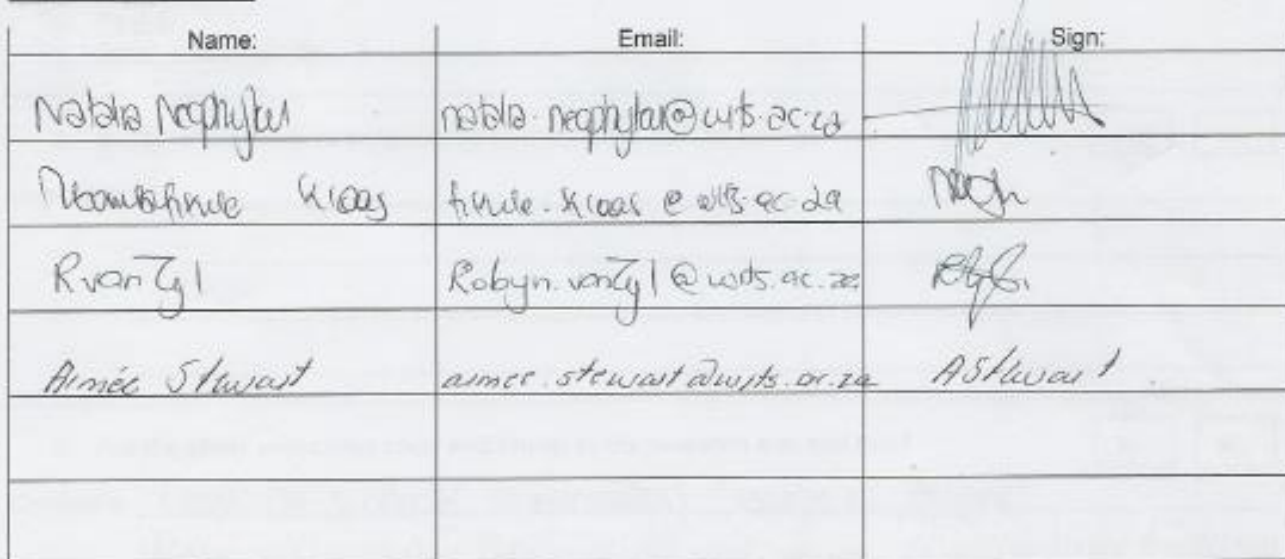 Name: Email: Sign:
Natalia Neophytou natalia.neophytou@wits.ac.za
Ntombifikile Klaas fikile.klaas@wits.ac.za
R van Zyl Robyn.vanZyl@wits.ac.za
Aimée Stewart aimee.stewart@wits.ac.za AStewart